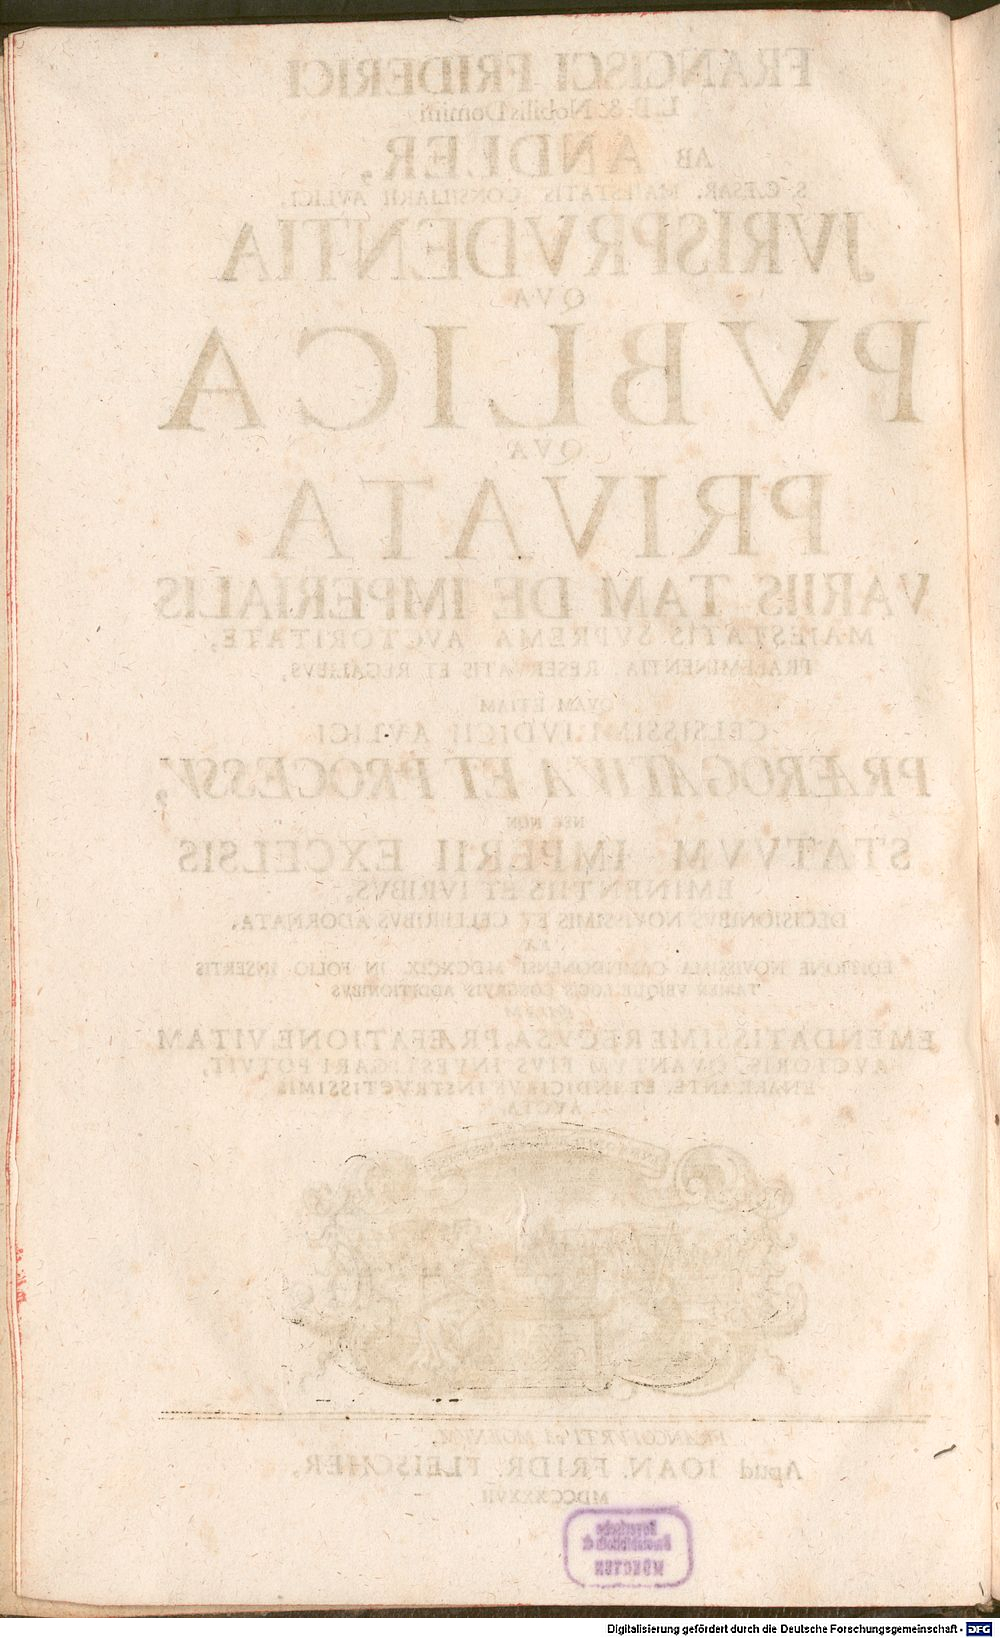 FRANCISCI FRIDERICI
L. B. & Nobilis Domini
AB ANDLER,
S. CÆSAR. MAJESTATIS CONSILIARII AVLICI,
JVRISPRVDENTIA
QVA
PVBLICA
QVA
PRIVATA
VARIIS TAM DE IMPERIALIS
MAJESTATIS SVPREMA AVCTORITATE,
PRAEEMINENTIA, RESERVATIS ET REGALIBVS,
QVAM ETIAM
CELSISSIMI IVDICII AVLICI
PRÆROGATIVA ET PROCESSV,
NEC NON
STATVVM IMPERII EXCELSIS
EMINENTIIS ET IVRIBVS,
DECISIONIBVS NOVISSIMIS ET CELEBRIBVS ADORNATA,
EX
EDITIONE NOVISSIMA CAMPIDONENSI MDCXCIX. IN FOLIO INSERTIS
TAMEN VBIQUE LOCIS CONGRVIS ADDITIONIBVS
EMENDATISSIME RECVSA, PRÆFATIONE VITAM
AVCTORIS, QVANTVM EIVS INVESTIGARI POTVIT,
ENARRANTE, ET INDICIBVS INSTRVCTISSIMIS
AVCTA.
FRANCOFVRTI ad MOENVM,
Apud IOAN. FRIDR. FLEISCHER,
MDCCXXXVII
Bayerische
Staatsbibliothek
MÜNCHEN
Digitalisierung gefördert durch die Deutsche Forschungsgemeinschaft - DFG